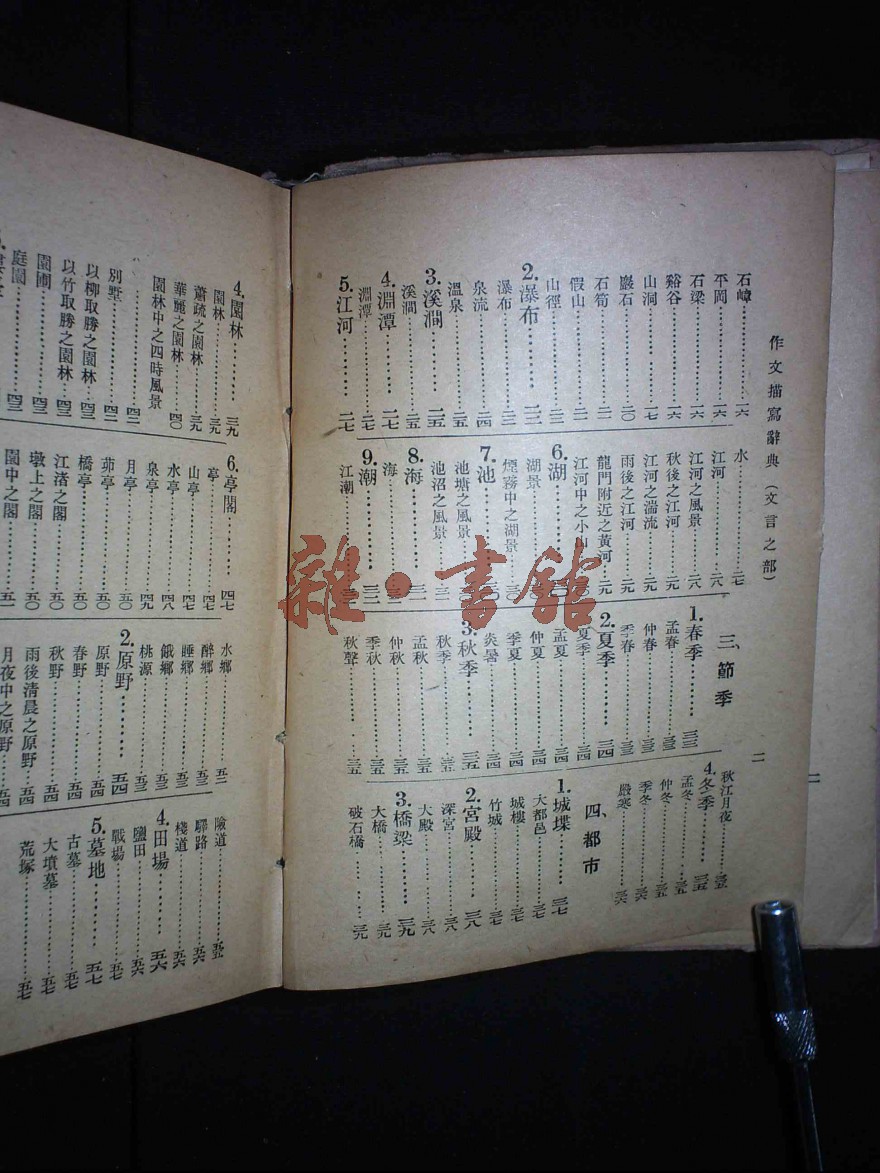 作文描寫辭典（文言之部）
二
石嶂……一六
平岡……一六
石梁……一六
谿谷……一六
山洞……一七
巖石……二〇
石筍……二一
假山……二一
山徑……二二
2.瀑布……二二
瀑布……二三
泉流……二四
溫泉……二五
3.溪澗……二五
溪澗……二五
4.淵潭……二七
淵潭……二七
5.江河……二七
水……二七
江河……二八
江河之風景……二八
秋後之江河……二九
江河之湍流……二九
雨後之江河……二九
龍門附近之黃河……二九
江河中之小山
6.湖
湖景
煙霧中之湖景……三〇
7.池
池塘之風景
池沼之風景
8.海
海
9.潮
江潮
三、節季
1.春季……三三
孟春……三三
仲春……三三
季春……三三
2.夏季……三四
夏季
孟夏……三四
仲夏……三四
季夏……三四
炎暑……三四
3.秋季……三五
秋季……三五
孟秋……三五
仲秋……三五
季秋……三五
秋聲……三五
秋江月夜……三五
4.冬季……三五
孟冬……三五
仲冬……三五
季冬……三六
嚴寒……三六
四、都市
1.城堞……三七
大都邑……三七
城樓……三七
竹城……三七
2.宮殿……三八
深宮……三八
大殿……三八
3.橋梁……三九
大橋……三九
破石橋……三九
4.園林……三九
園林……三九
蕭疏之園林……三九
華麗之園林……四〇
園林中之四時風景
……四一
別墅……四二
以柳取勝之園林……四三
以竹取勝之園林……四三
園圃……四三
庭園……四三
6.亭閣……四七
亭……四七
山亭……四七
水亭……四八
泉亭……四九
月亭……五〇
茆亭……五〇
橋亭……五〇
江渚之閣……五〇
墩上之閣……五〇
園中之閣……五一
水鄉……五二
醉鄉……五三
睡鄉……五三
餓鄉……五三
桃源……五三
2.原野……五四
原野……五四
春野……五四
秋野……五四
雨後清晨之原野……五四
月夜中之原野……五四
險道……五五
驛路……五六
棧道……五六
4.田場……五六
鹽田……五六
戰場……五七
5.墓地……五七
古墓……五七
大墳墓……五七
荒塚……五七
雜·書館